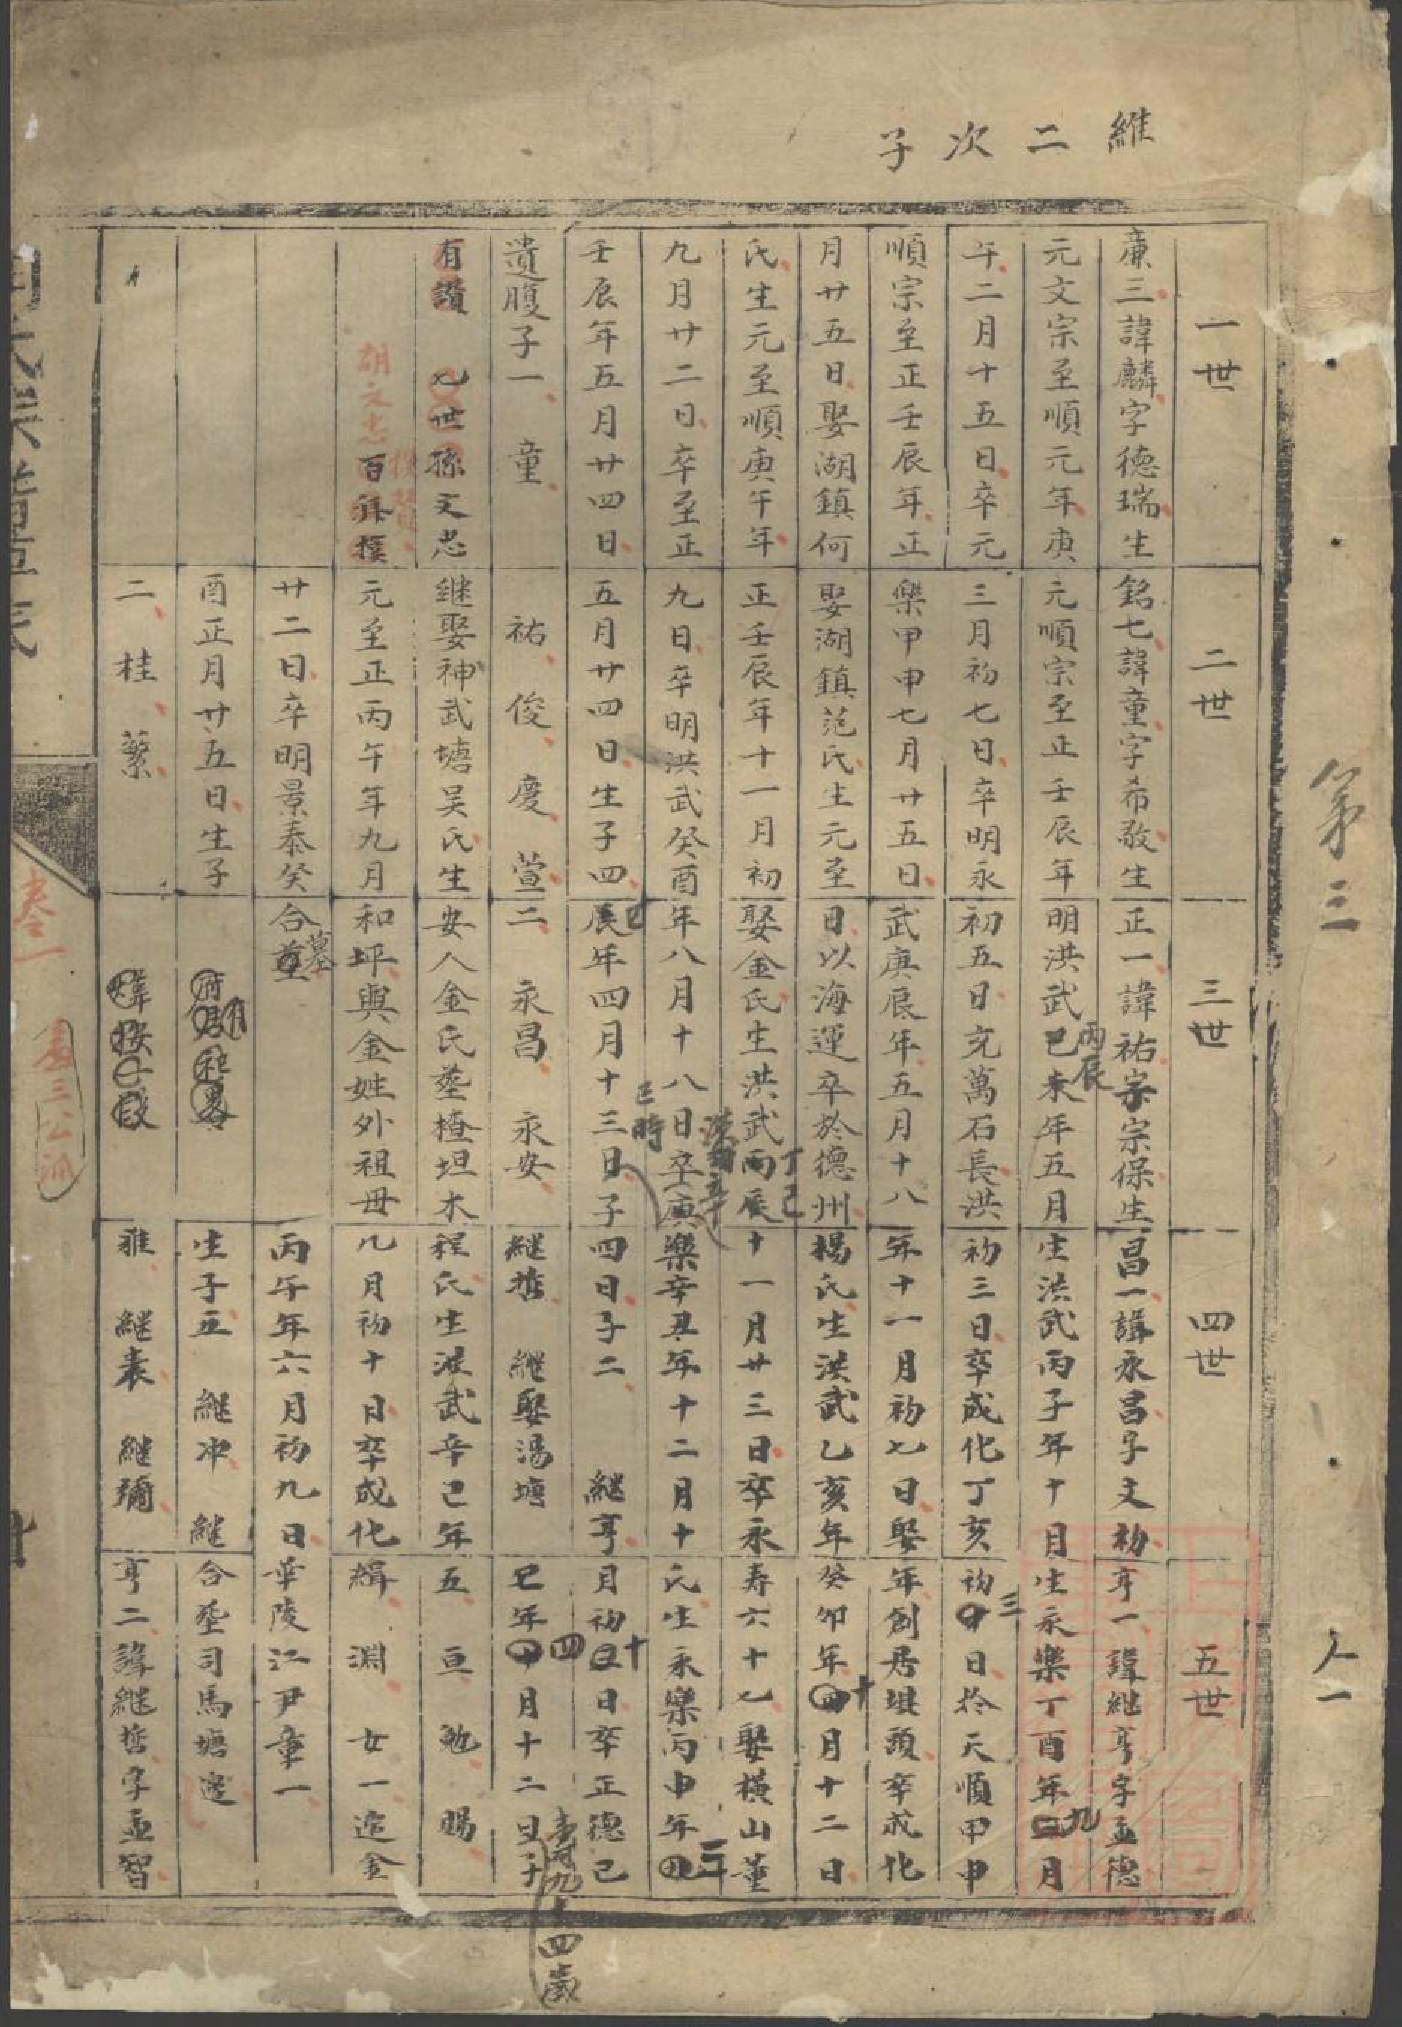 維二次子
一世
廉三諱麟字德瑞生
元文宗至順元年庚
午二月十五日卒元
順宗至正壬辰年正
月廿五日娶湖鎮何
氏生元至順庚午年
九月廿二日卒至正
壬辰年五月廿四日
遺腹子一童
有讚 七世孫文忠
百拜撰
胡文忠
二世
銘七諱童字希敬生
元順宗至正壬辰年
三月初七日卒明永
樂甲申七月廿五日
娶湖鎮范氏生元至
正壬辰年十一月初
九日卒明洪武癸酉
五月廿四日生子四
祐俊慶萱
继娶神武塘吴氏生
元至正丙午年九月
廿二日卒明景泰癸
酉正月廿五日生子
二桂蘩
三世
正一諱祐宗宗保生
明洪武巳未年五月
丙辰
初五日充萬石長洪
武庚辰年五月十八
日以海運卒於德州
娶金氏生洪武丙辰
丁巳
年八月十八日卒庚
巳時
辰年四月十三日子
二永昌永安
安人金氏墓楂坦木
和坪與金姓外祖母
合墓
四世
昌一諱永昌字文初
生洪武丙子年十月
初三日卒成化丁亥
年十一月初七日娶
楊氏生洪武乙亥年
十一月廿三日卒永
樂辛丑年十二月十
四日子二 繼亨
繼哲 繼娶湯塘
程氏生洪武辛巳年
八月初十日卒成化
丙午年六月初九日
生子五 繼冲 繼
雅 繼表 繼彌
五世
亨一諱繼亨字孟德
生永樂丁酉年九月
初三日於天順甲申
年創居琪頭卒成化
癸卯年十月十二日
寿六十七娶橫山董
氏生永樂丙申年二
月初十日卒正德己
巳年四月十二日子
壽九十四歲
五 亘 勉 賜
緝 淵 女一適金
華陵江尹章一
合墓司馬塘邊
亨二諱繼哲字孟智
第三
人一
卷一